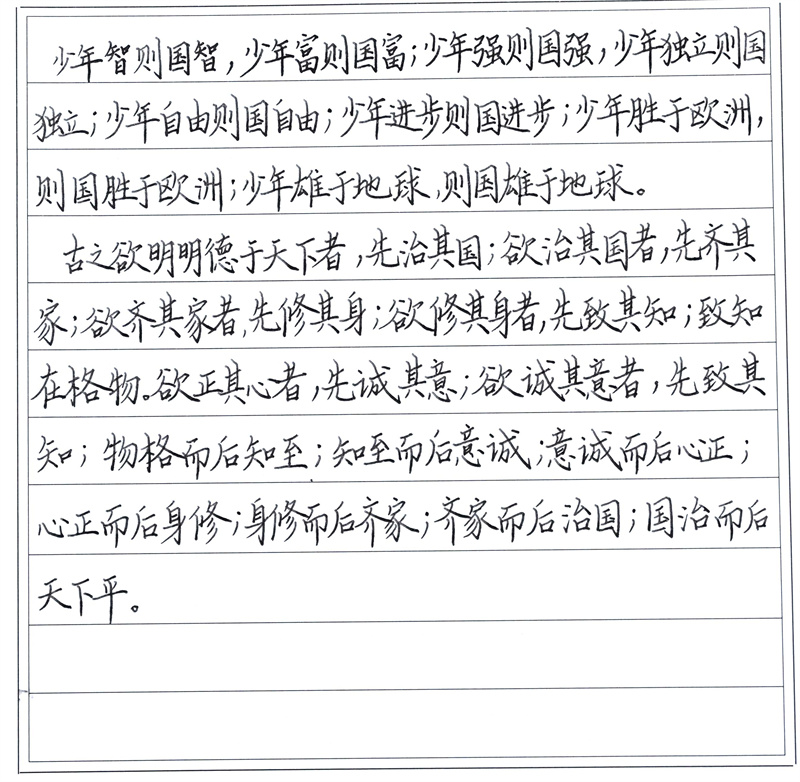 少年智则国智，少年富则国富；少年强则国强，少年独立则国
独立；少年自由则国自由；少年进步则国进步；少年胜于欧洲，
则国胜于欧洲；少年雄于地球，则国雄于地球。
古之欲明明德于天下者，先治其国；欲治其国者，先齐其
家；欲齐其家者，先修其身；欲修其身者，先致其知；致知
在格物。欲正其心者，先诚其意；欲诚其意者，先致其
知；物格而后知至；知至而后意诚；意诚而后心正；
心正而后身修；身修而后齐家；齐家而后治国；国治而后
天下平。